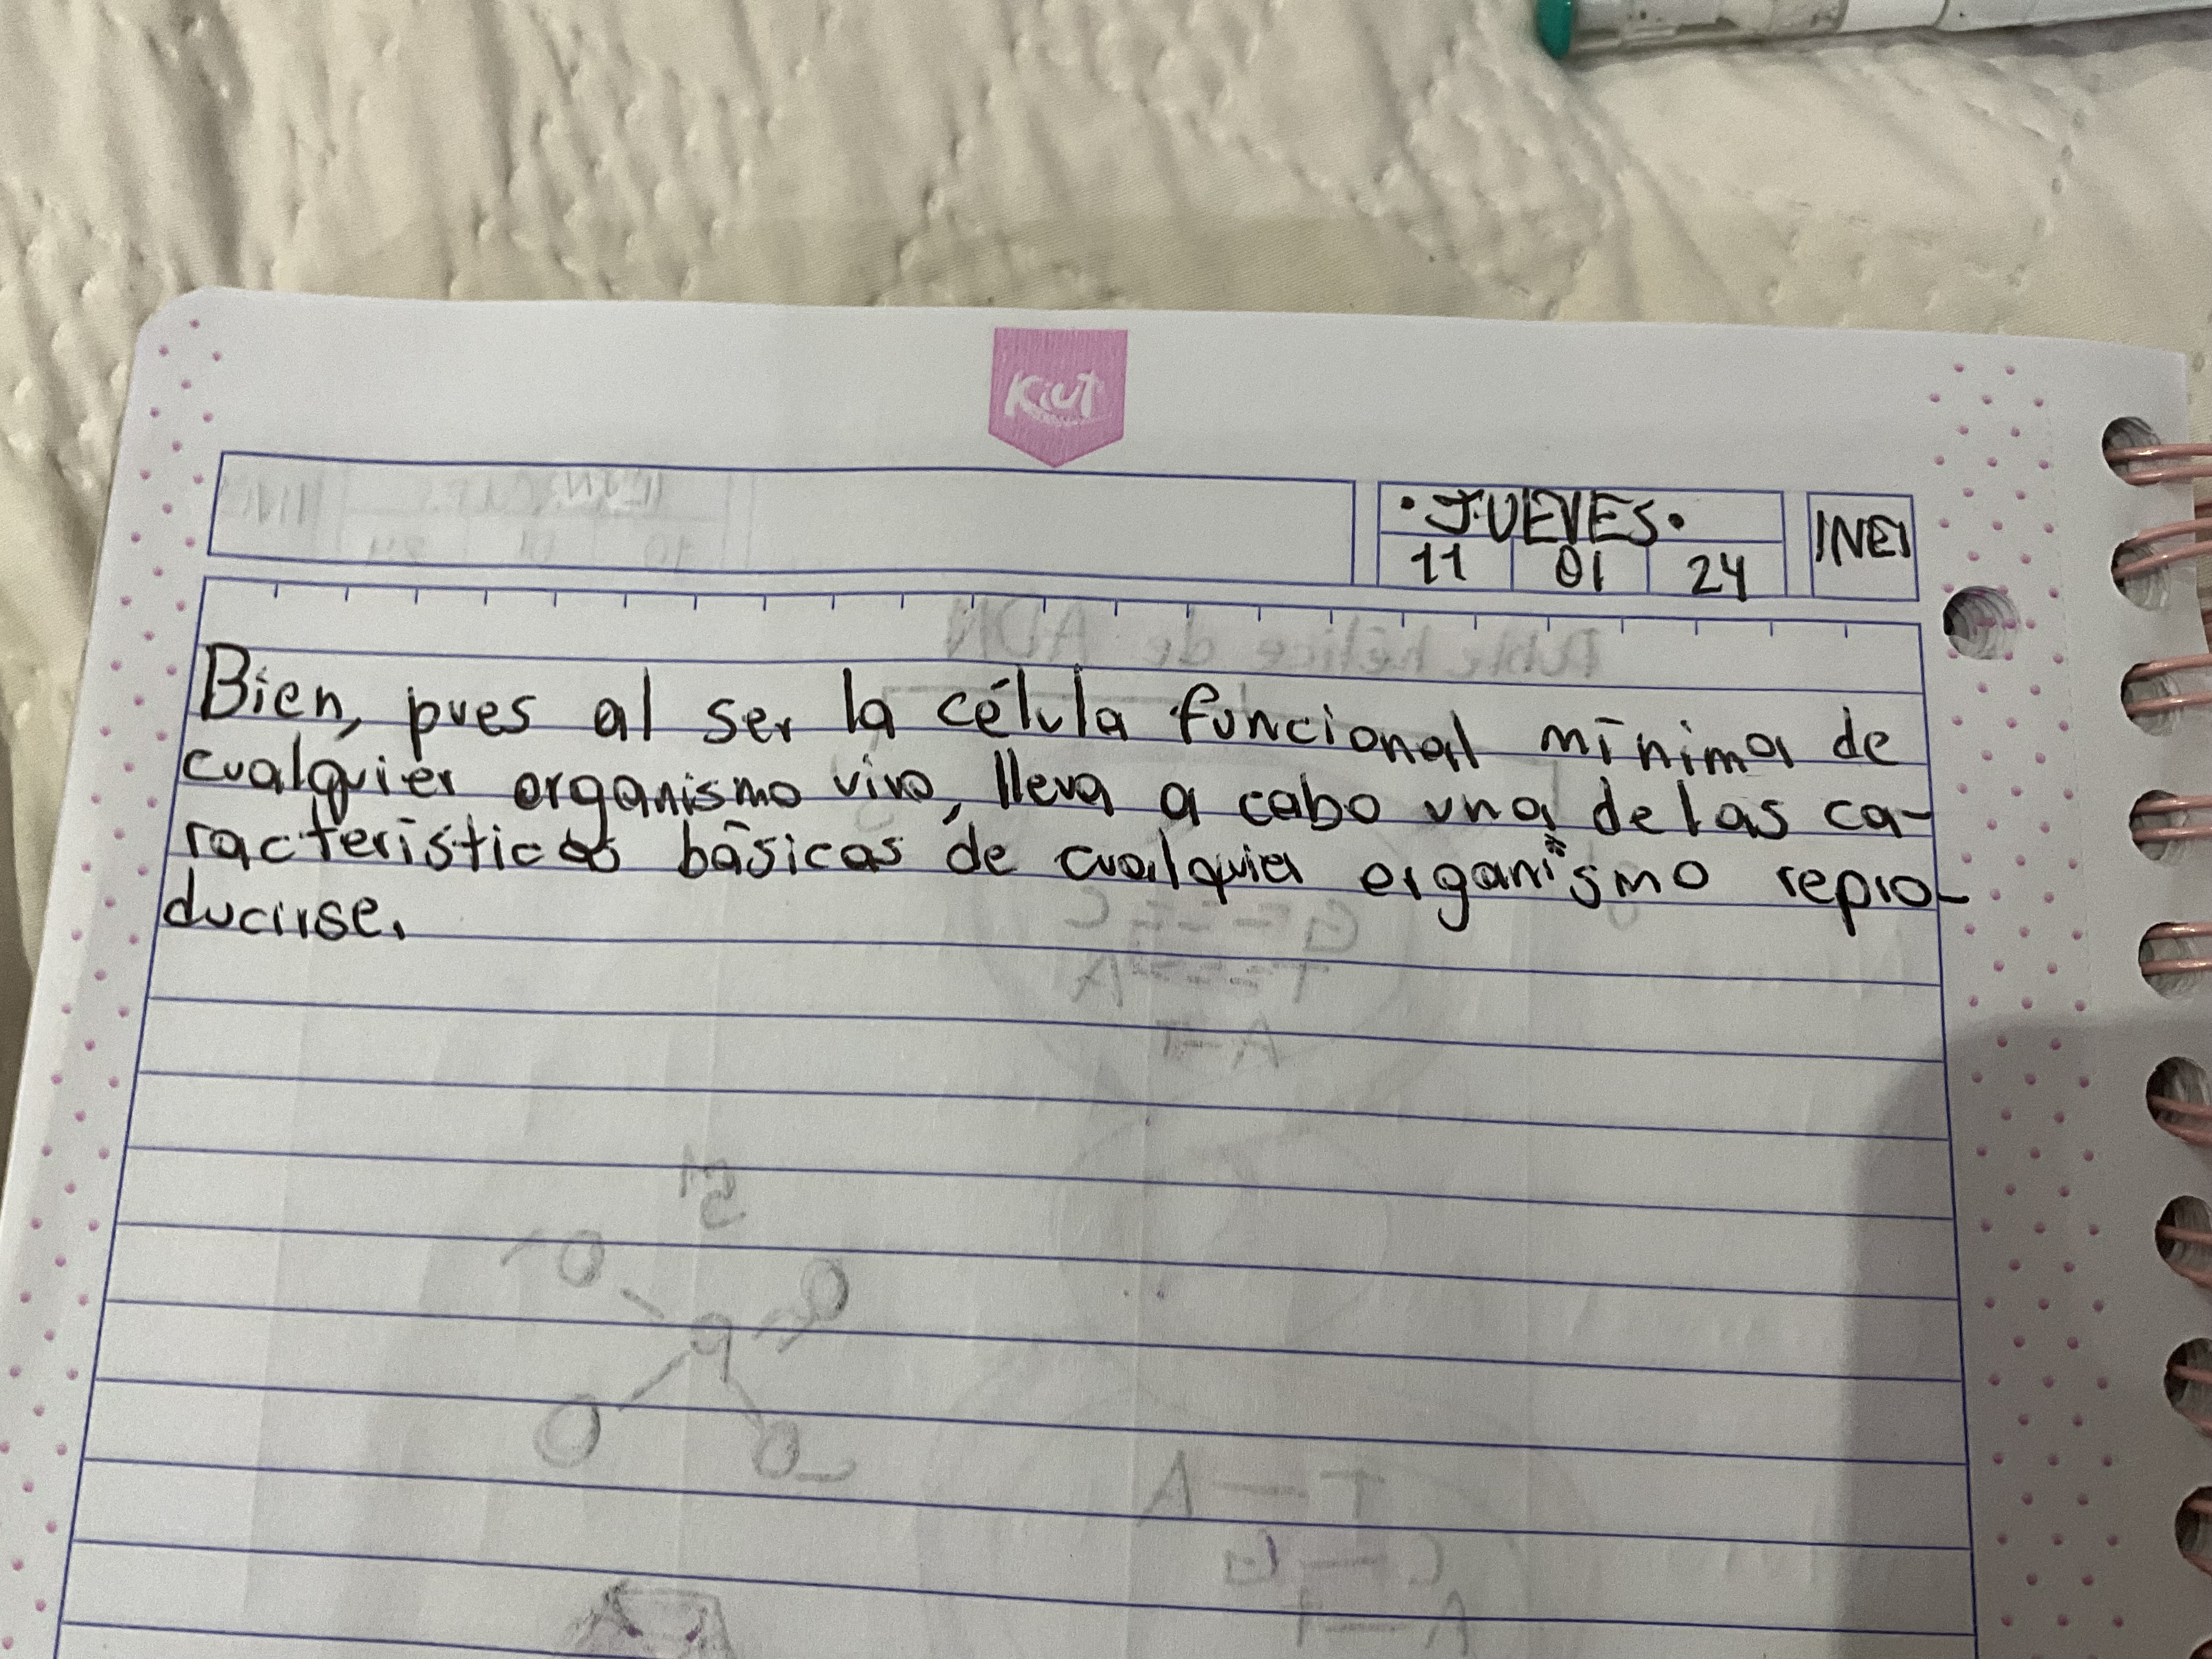 Kiut
•JUEVES•
11 01 24
INEI
Bien, pues al ser la célula funcional mínima de
cualquier organismo vivo, lleva a cabo una de las ca-
racterísticas básicas de cualquier organismo repro-
ducirse.